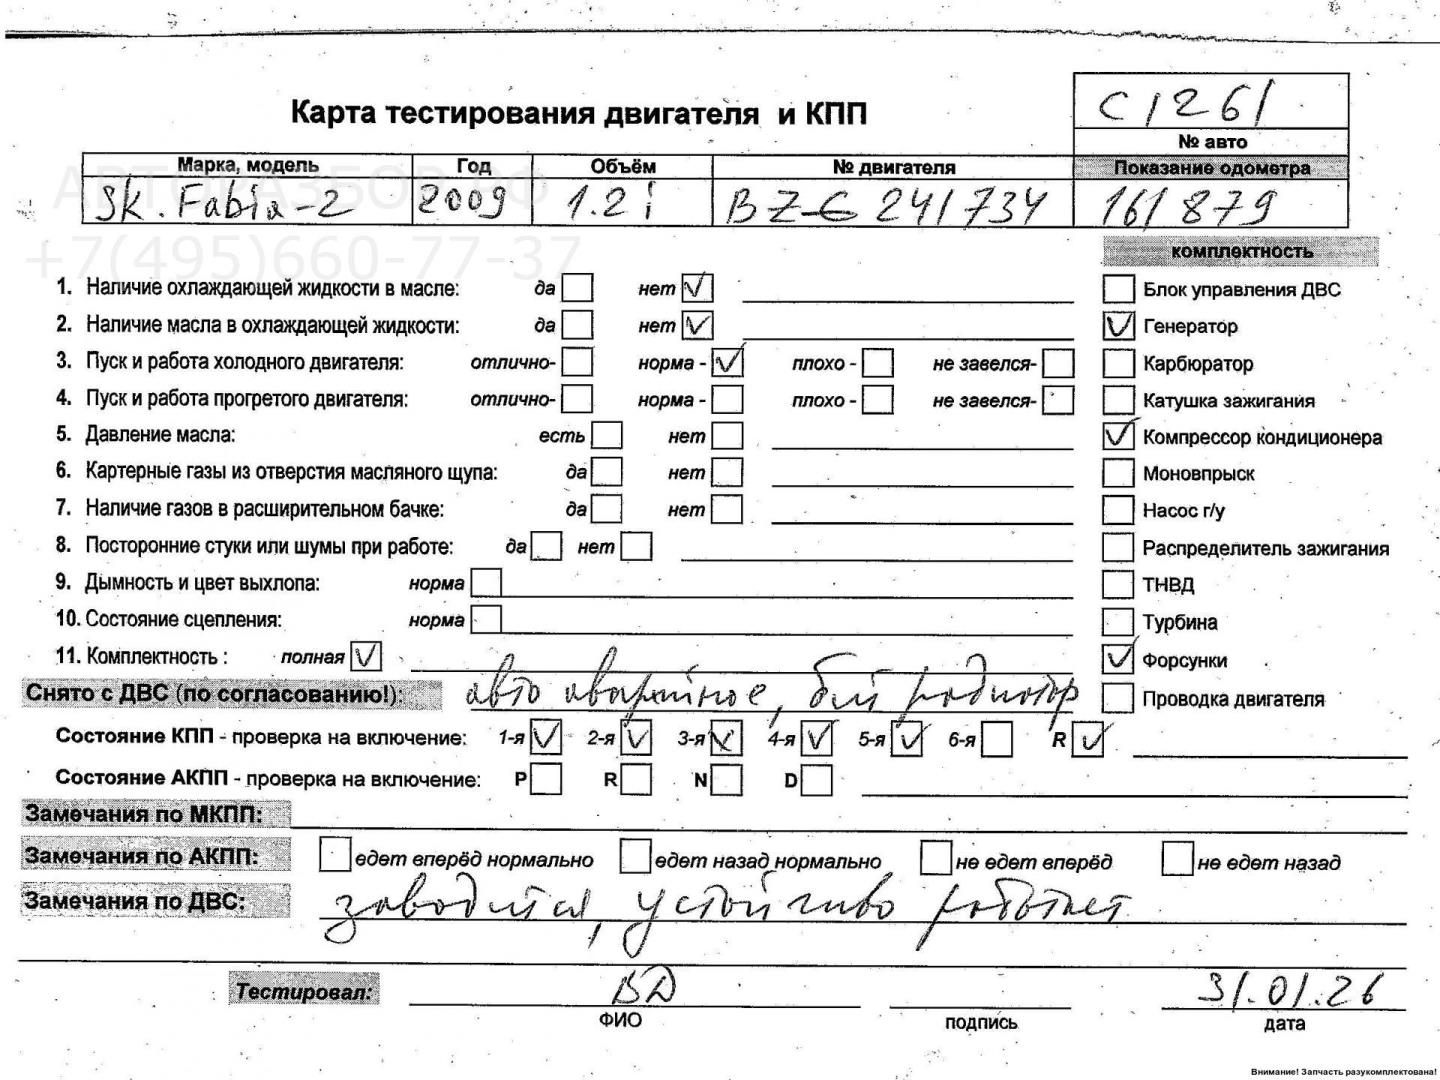 C1261
Карта тестирования двигателя и КПП
№ авто
Марка, модель Год Объём № двигателя Показание одометра
АВТОРАЗБОР.РФ
Sk. Fabia-2 2009 1.2 i BZG 241734 161879
+7(495)660-77-37
комплектность
1. Наличие охлаждающей жидкости в масле: да нет Блок управления ДВС
2. Наличие масла в охлаждающей жидкости: да нет Генератор
3. Пуск и работа холодного двигателя: отлично- норма - плохо - не завелся- Карбюратор
4. Пуск и работа прогретого двигателя: отлично- норма - плохо - не завелся- Катушка зажигания
5. Давление масла: есть нет Компрессор кондиционера
6. Картерные газы из отверстия масляного щупа: да нет Моновпрыск
7. Наличие газов в расширительном бачке: да нет Насос г/у
8. Посторонние стуки или шумы при работе: да нет Распределитель зажигания
9. Дымность и цвет выхлопа: норма ТНВД
10. Состояние сцепления: норма Турбина
11. Комплектность : полная Форсунки
Снято с ДВС (по согласованию!): авто аварийное, бит радиатор Проводка двигателя
Состояние КПП - проверка на включение: 1-я 2-я 3-я 4-я 5-я 6-я R
Состояние АКПП - проверка на включение: P R N D
Замечания по МКПП:
Замечания по АКПП: едет вперёд нормально едет назад нормально не едет вперёд не едет назад
Замечания по ДВС: заводится, устойчиво работает
Тестировал: ВД 31.01.26
ФИО подпись дата
Внимание! Запчасть разукомплектована!